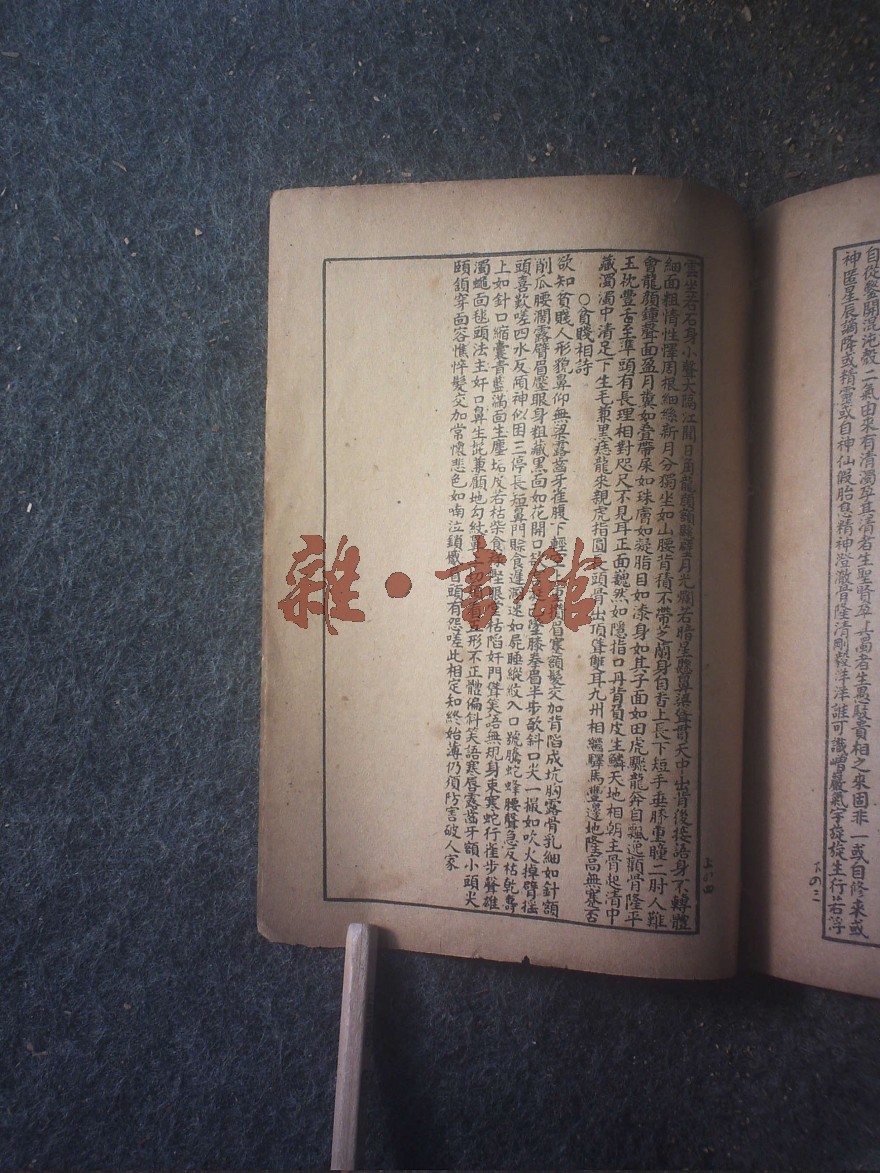 自從鑿開混沌殼二氣由來有清濁孕其清者生聖賢孕其濁者生愚駿貴相之來固非一或自修來或
神匿星辰謫降或精靈或自神仙假胎息精神澄澈骨隆清剛毅洋洋誰可識嶒巖氣宇旋旋生行若浮
下の二
雲坐若石身小聲大隔江聞日角龍顏額懸壁月光爛若曙星懸鼻梁聳貫天中出背後接語身不轉體
細面粗情性懌周根細絲新月分獨坐如山腰背積不帶芝蘭身自香上長下短手垂膝重瞳二肘人難
會龍顏鐘聲面盈月糞如疊帶尿如珠膚如凝脂目如漆身如其子面如田虎驟龍奔自飄逸顴骨隆平
玉枕豐舌至準頭有長理相對咫尺不見耳正面魏然如隱指口丹背負皮生鱗天地相朝主骨起清中
藏濁濁中清足下生毛兼黑痣龍來親虎指圓 頭骨出頂聳雙耳九州相繼驛馬豐邊地隆高無蹇否
○貧賤相詩
欲知貧賤人形貌鼻仰無梁露齒牙雀腹下輕 眉寒額髮交加背陷成坑胸露骨乳細如針額
削瓜腰濶露臂眉壓眼身粗藏黑面如花開口 墜膝拳眉半步欹斜口尖一撮如吹火掉臂搖
頭喜歎嗟四水反傾神似困三停長短鼻門賒食遲溷速如屍睡縱紋入口號騰蛇蜂腰聲急皮枯乾壽
上如針口縮囊青藍滿面生塵垢皮若枯柴食 堂枯陷奸門聳笑語無規身東寒蛇行雀步聲雄
濁蠅面毬頭法主奸口鼻生 兼顧地勾紋 形不正體偏斜笑語寒唇露齒牙額小頭尖
頤頷穿面容憔悴髮交加常懷悲色如喃泣鎖 眉頭有怨嗟此相定知終始薄仍須防害破人家
上の四
雜·書館